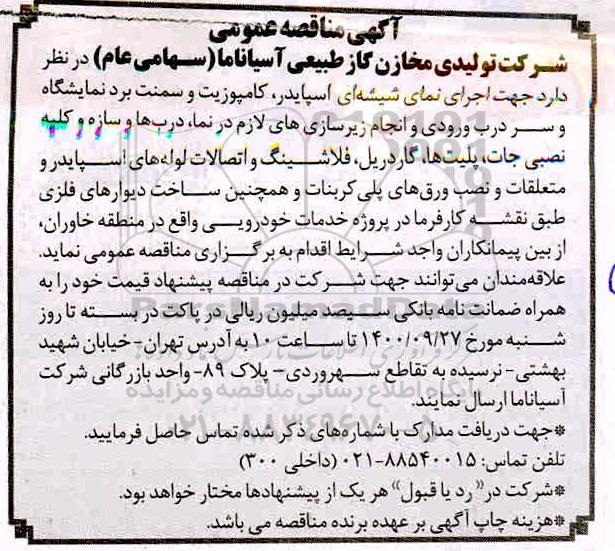 آگهی مناقصه عمومی
شرکت تولیدی مخازن گاز طبیعی آسیاناما (سهامی عام) در نظر
دارد جهت اجرای نمای شیشه‌ای اسپایدر، کامپوزیت و سمنت برد نمایشگاه
و سر درب ورودی و انجام زیرسازی های لازم در نما، درب‌ها و سازه و کلیه
نصبی جات، پلیت‌ها، گاردریل، فلاشینگ و اتصالات لوله‌های اسپایدر و
متعلقات و نصب ورق‌های پلی کربنات و همچنین ساخت دیوارهای فلزی
طبق نقشه کارفرما در پروژه خدمات خودرویی واقع در منطقه خاوران،
از بین پیمانکاران واجد شرایط اقدام به برگزاری مناقصه عمومی نماید.
علاقه‌مندان می‌توانند جهت شرکت در مناقصه پیشنهاد قیمت خود را به
همراه ضمانت نامه بانکی سیصد میلیون ریالی در پاکت در بسته تا روز
شنبه مورخ ۱۴۰۰/۰۹/۲۷ تا ساعت ۱۰ به آدرس تهران- خیابان شهید
بهشتی- نرسیده به تقاطع سهروردی- پلاک ۸۹- واحد بازرگانی شرکت
آسیاناما ارسال نمایند.
*جهت دریافت مدارک با شماره‌های ذکر شده تماس حاصل فرمایید.
تلفن تماس: ۸۸۵۴۰۰۱۵-۰۲۱ (داخلی ۳۰۰)
*شرکت در «رد یا قبول» هر یک از پیشنهادها مختار خواهد بود.
*هزینه چاپ آگهی بر عهده برنده مناقصه می باشد.